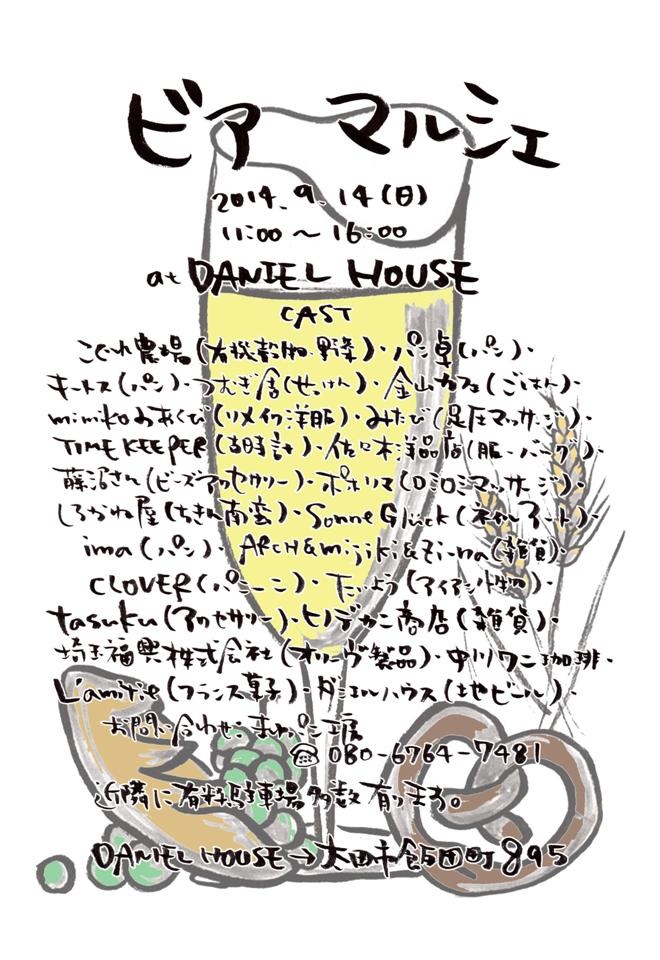 ビアマルシェ
2014.9.14(日)
11:00～16:00
at DANIEL HOUSE
CAST
こぐれ農場(有機穀物・野菜)・パン卓(パン)・
キートス(パン)・つむぎ舎(せっけん)・金山カフェ(ごはん)・
mimikoおあくび(リメイク洋服)・みたび(足圧マッサージ)・
TIME KEEPER(古時計)・佐々木洋品店(服・バッグ)・
藤沼さん(ビーズアクセサリー)・ポホリマ(ロミロミマッサージ)・
しろかね屋(ちきん南蛮)・Sonne Glück(ネイルアート)・
ima(パン)・ARCH&mijiki&Zi-na(雑貨)・
CLOVER(パニーニ)・たいよう(アイアン小物)・
tasuku(アクセサリー)・ヒノデカニ商店(雑貨)・
埼玉福興株式会社(オリーヴ製品)・中川ワニ珈琲・
L'amitié(フランス菓子)・ダニエルハウス(地ビール)・
お問い合わせ:パン工房
☎080-6764-7481
近隣に有料駐車場多数有ります。
DANIEL HOUSE→太田市飯田町895